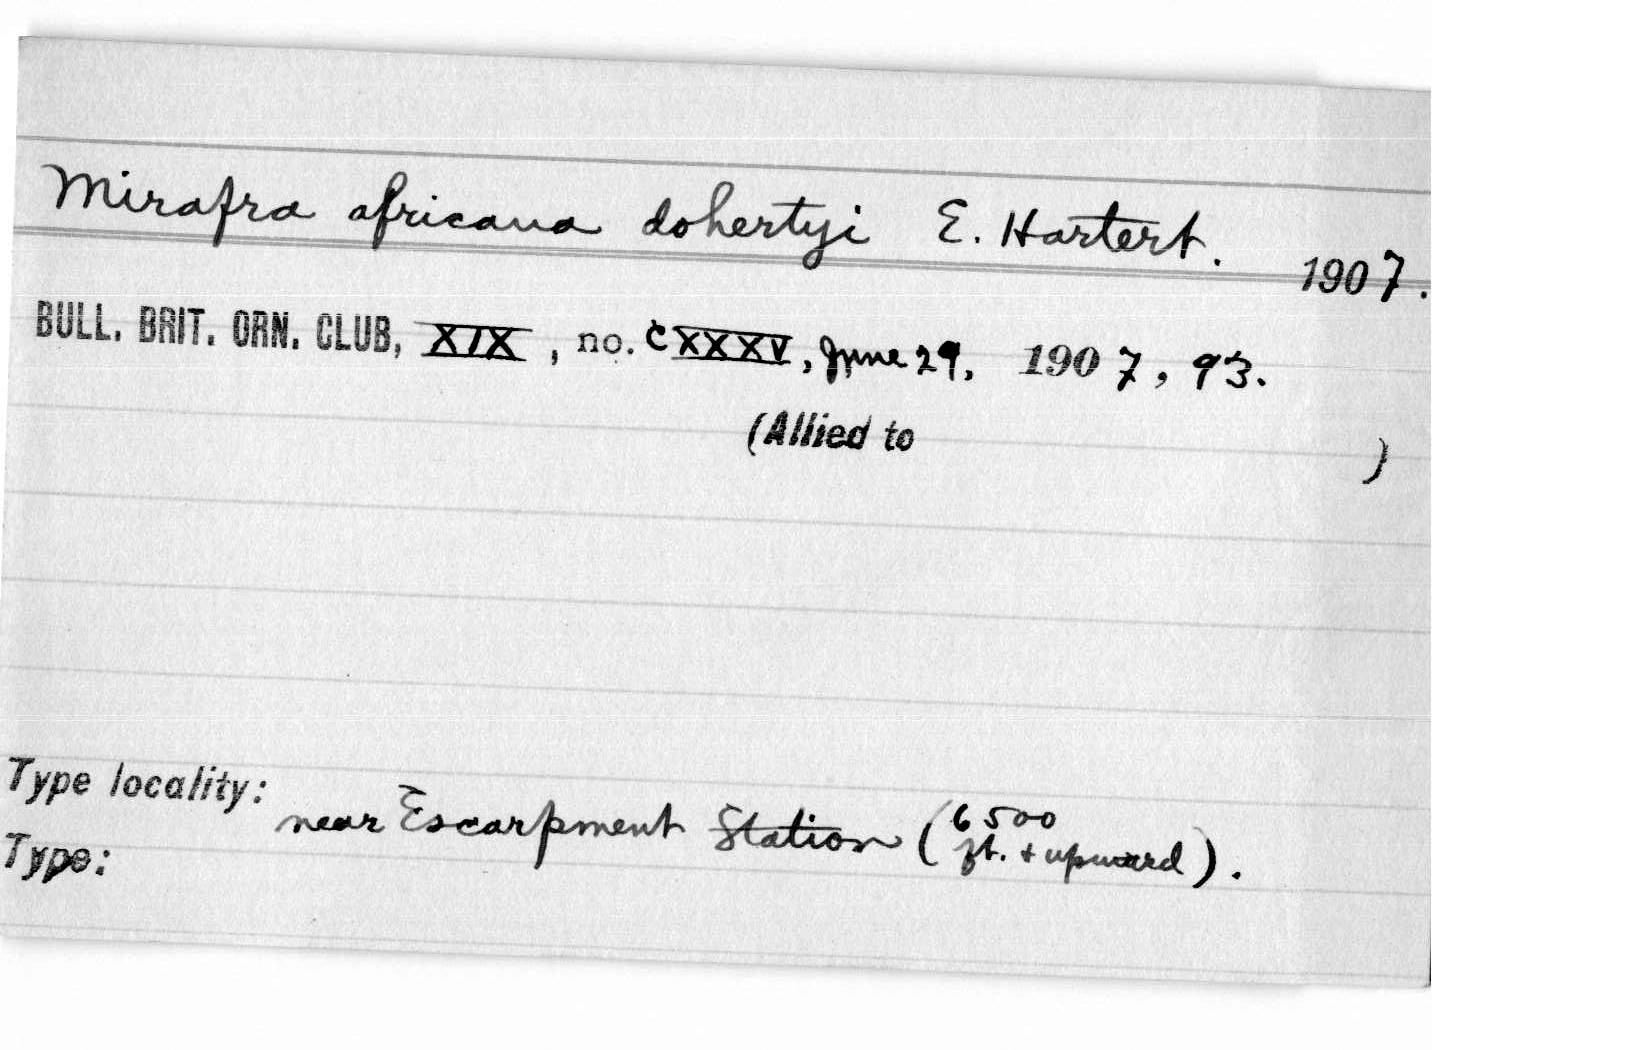 Mirafra africana dohertyi E. Hartert. 1907.
BULL. BRIT. ORN. CLUB, XIX, no. CXXXV, June 29, 1907, 93.
(Allied to )
Type locality: near Escarpment Station (6500
ft. + upward).
Type: